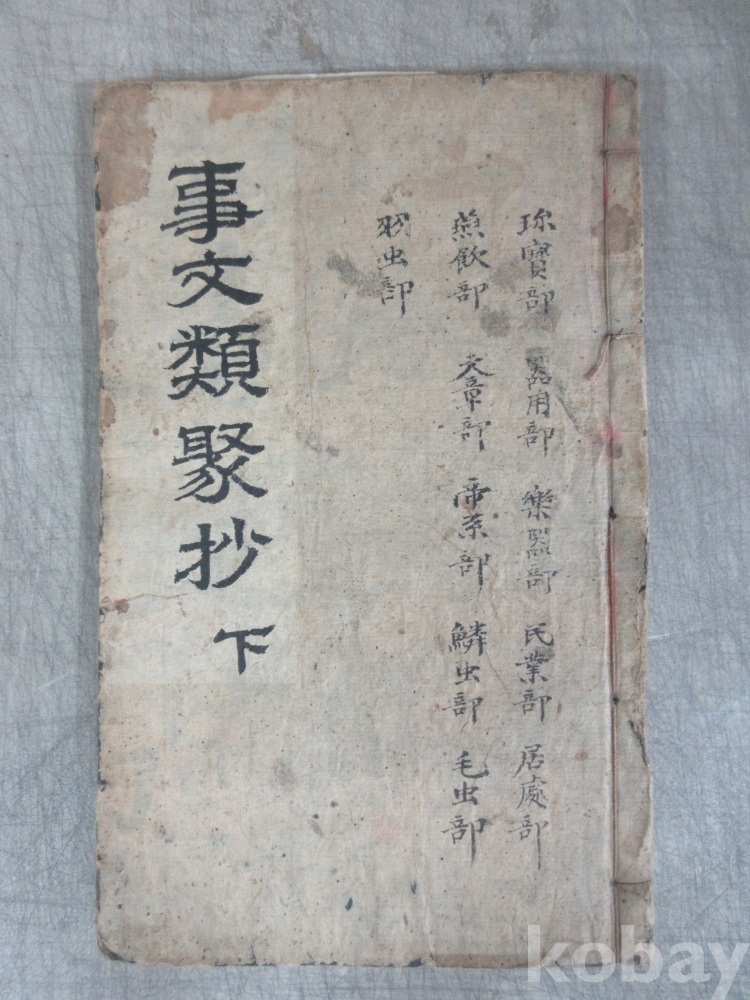 珎寶部 器用部 樂器部 民業部 居處部
燕飮部 文章部 帝系部 鱗虫部 毛虫部
羽虫部
事文類聚抄 下
kobay